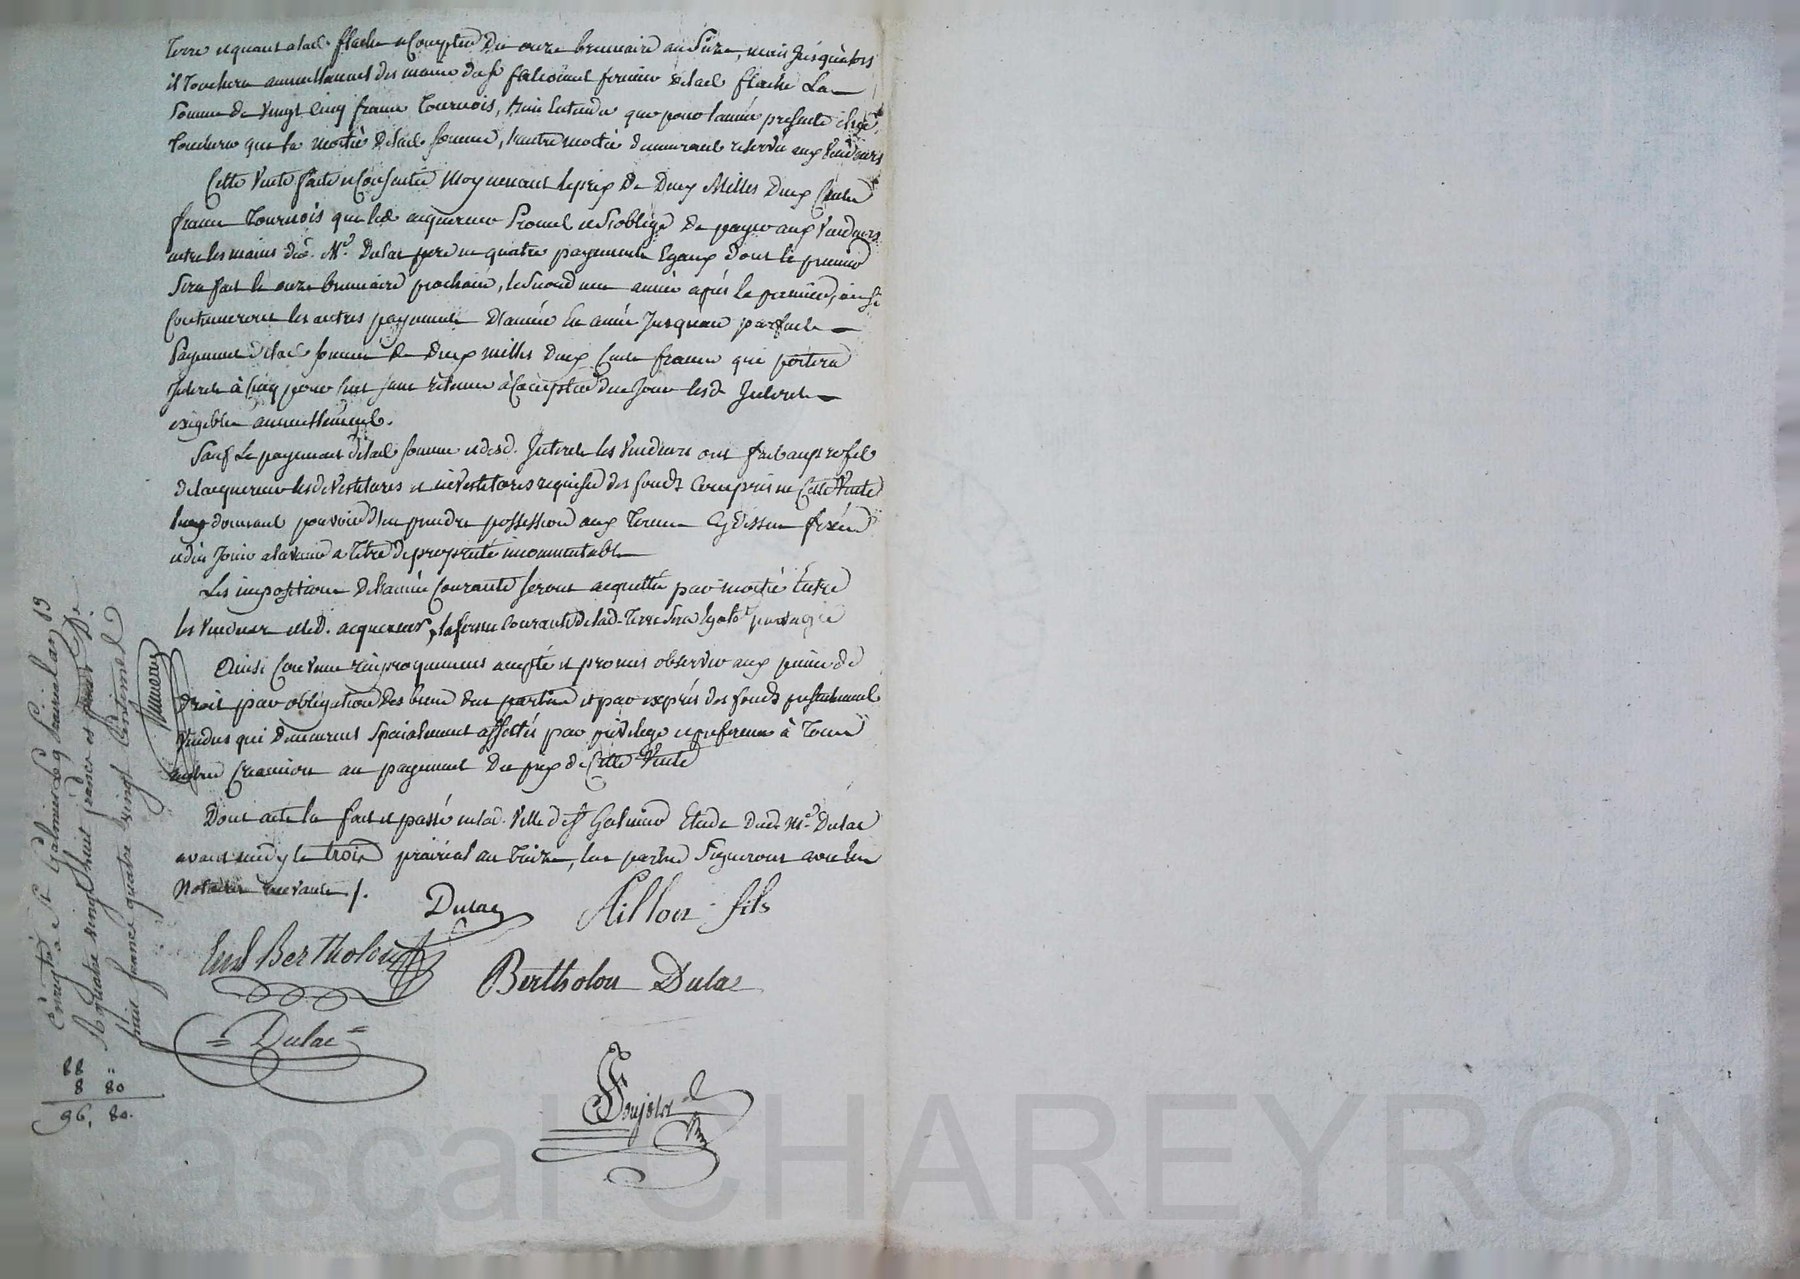 Terre et quant à lad. flache à Compter Du onze brumaire an Size, mais Jusqu'alors
il Touchera annuellement des mains du fermier delad. flache La
Somme De Vingt Cinq francs Tournois, bien Entendu que pour l'année presente il ne
Touchera que la moitié Delad. somme, l'autre moitié demeurant réservée aux Vendeurs
Cette Vente faite et Consentie Moyennant le prix De Deux Milles Deux Cents
francs Tournois que led. acquereur Promet et S'oblige De payer aux Vendeurs
entre les mains dud. Mr. Dulac pere en quatre payements Egaux dont le premier
Sera fait le onze brumaire prochain, le Second une année après le premier, ainsi
Continueront les autres payements D'année En année Jusqu'au parfait
Payement delad. somme de Deux milles Deux Cents francs qui portera
Interets à Cinq pour Cent sans Retenue à Compter de ce Jour lesd. Interets
exigibles annuellement.
Sauf Le payement delad. somme et desd. Interets les Vendeurs ont fait au profit
De l'acquereur les devestitures et investitures requises des fonds Compris en Cette Vente
luy donnant pouvoir d'en prendre possession aux Termes Cy Dessus fixés
et d'en Jouir à l'avenir à Titre de proprieté incommutable
Les impositions De l'année Courante seront acquittées par moitié Entre
les Vendeurs et led. acquereur, la ferme Courante delad. Terre Sera Egalemt. partagée
Ainsi Convenu réciproquement accepté et promis observer aux peines de
Droit par obligation Des biens des parties et par exprès des fonds presentement
Vendus qui Demeurent Specialement affectés par privilege et preference à Tous
autres Creanciers au payement Du prix de Cette Vente
Dont acte la fait et passé en lad. Ville de St. Galmier Etude Dud. Mr. Dulac
avant midy le trois prairial an Treize, les parties Signeront avec les
Notaires recevants /.
Dulac Aillon fils
Bertholon
Bertholon Dulac
= Dulac =
Enregistré à St. Galmier Le cinq Prairial an 13
R quatre vingt huit francs et pour D.
huit francs quatre vingt Centimes
88 "
8 80
96, 80.
Pascal CHAREYRON